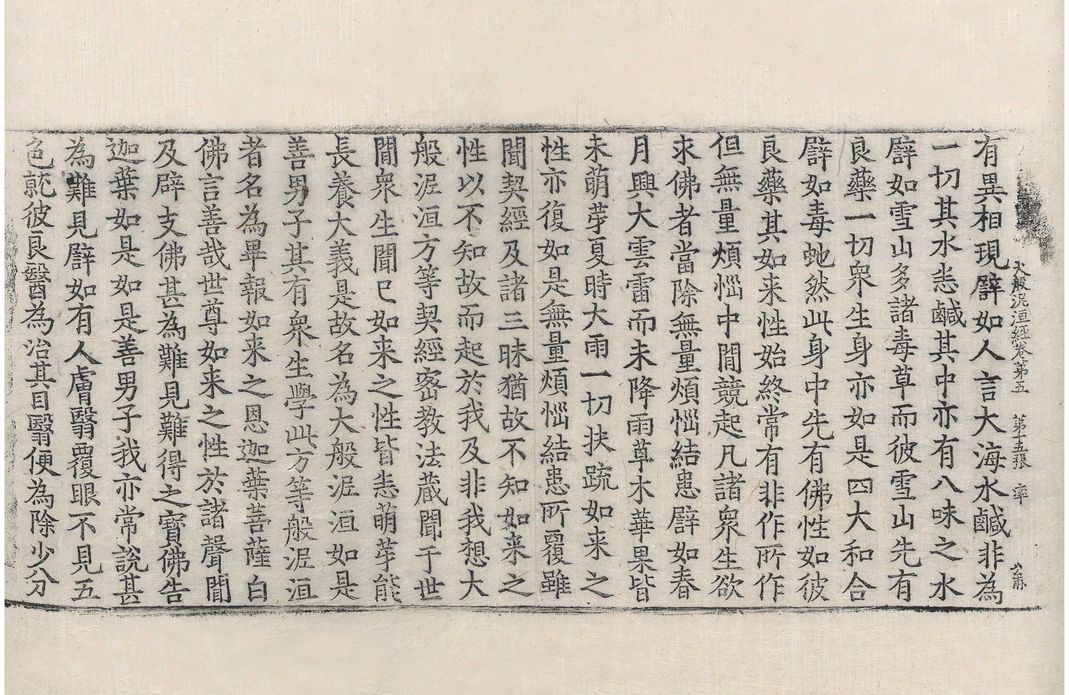 大般泥洹經卷第五 第十五張 率
有異相現譬如人言大海水鹹非為
一切其水悉鹹其中亦有八味之水
譬如雪山多諸毒草而彼雪山先有
良藥一切衆生身亦如是四大和合
譬如毒虵然此身中先有佛性如彼
良藥其如来性始終常有非作所作
但無量煩惱中間競起凡諸衆生欲
求佛者當除無量煩惱結患譬如春
月興大雲雷而未降雨草木華果皆
未萌芽夏時大雨一切扶疏如来之
性亦復如是無量煩惱結患所覆雖
聞契經及諸三昧猶故不知如来之
性以不知故而起於我及非我想大
般泥洹方等契經密教法蔵聞于世
間衆生聞已如来之性皆悉萌芽能
長養大義是故名為大般泥洹如是
善男子其有衆生學此方等般泥洹
者名為畢報如来之恩迦葉菩薩白
佛言善哉世尊如来之性於諸聲聞
及辟支佛甚為難見難得之寶佛告
迦葉如是如是善男子我亦常說甚
為難見譬如有人膚翳覆眼不見五
色就彼良醫為治其目翳便為除少分